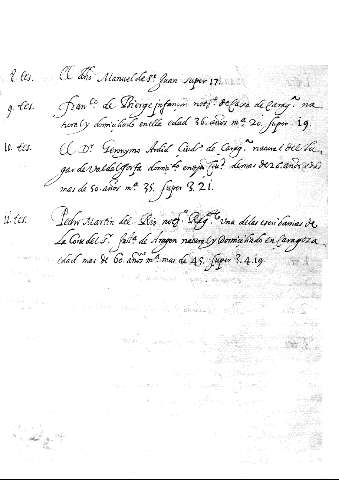 8. tes. El Dho Manuel de St Juan super 17.
9. tes. Franco de Bierge infançon notº de Casa de Caragª na
tural y domiciliado en ella edad 36. años mª 20. super 19.
10. tes. El Dr Geronymo Ardid Ciudº de Caragª natural del Lu
gar de Valdelgorfa domicº en esta Ciuª de mas de 26. años edad
mas de 50. años mª 35. super 3. 21.
11. tes. Pedro Martin del Rio notº una de las escribanias de
la Corte del Sr Justª de Aragon natural y Domiciliado en Caragoza
edad mas de 60. años mª mas de 45. super 3. 4. 19.